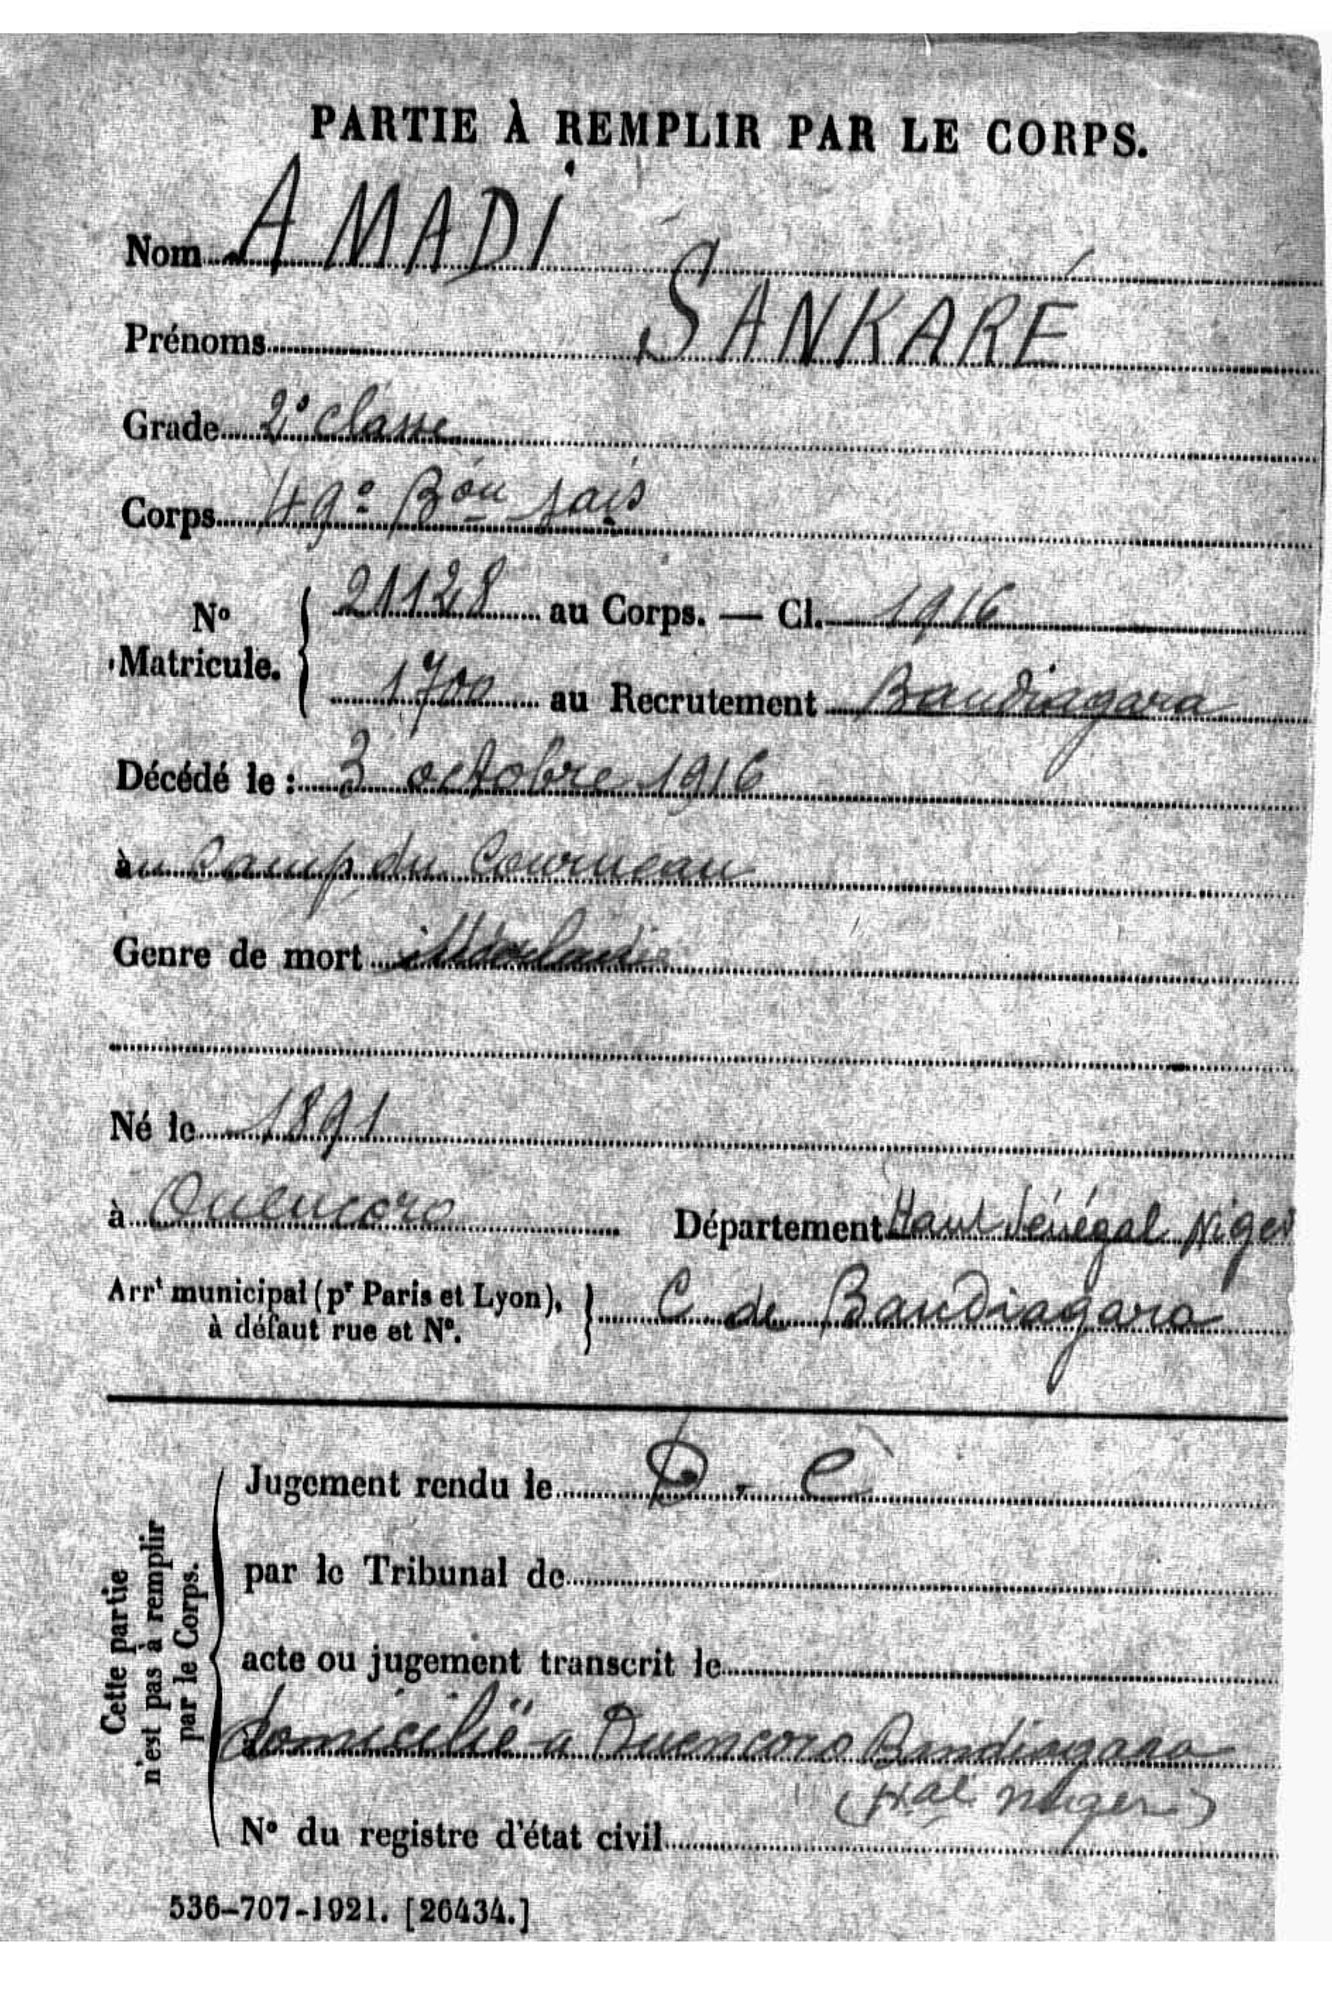 PARTIE À REMPLIR PAR LE CORPS.
Nom AMADI
Prénoms SANKARÉ
Grade 2e classe
Corps 49e Bon
No Matricule. 21128 au Corps. — Cl. 1916
1700 au Recrutement Bandiagara
Décédé le : 3 octobre 1916
au Camp du Courneau
Genre de mort
Né le 1891
à Ouencoro Département Haut Sénégal Niger
Arrt municipal (pr Paris et Lyon), à défaut rue et No. C de Bandiagara
Cette partie n'est pas à remplir par le Corps.
Jugement rendu le D. C
par le Tribunal de
acte ou jugement transcrit le
domicilié a Ouencoro Bandiagara
Niger)
No du registre d'état civil
536-707-1921. [26434.]